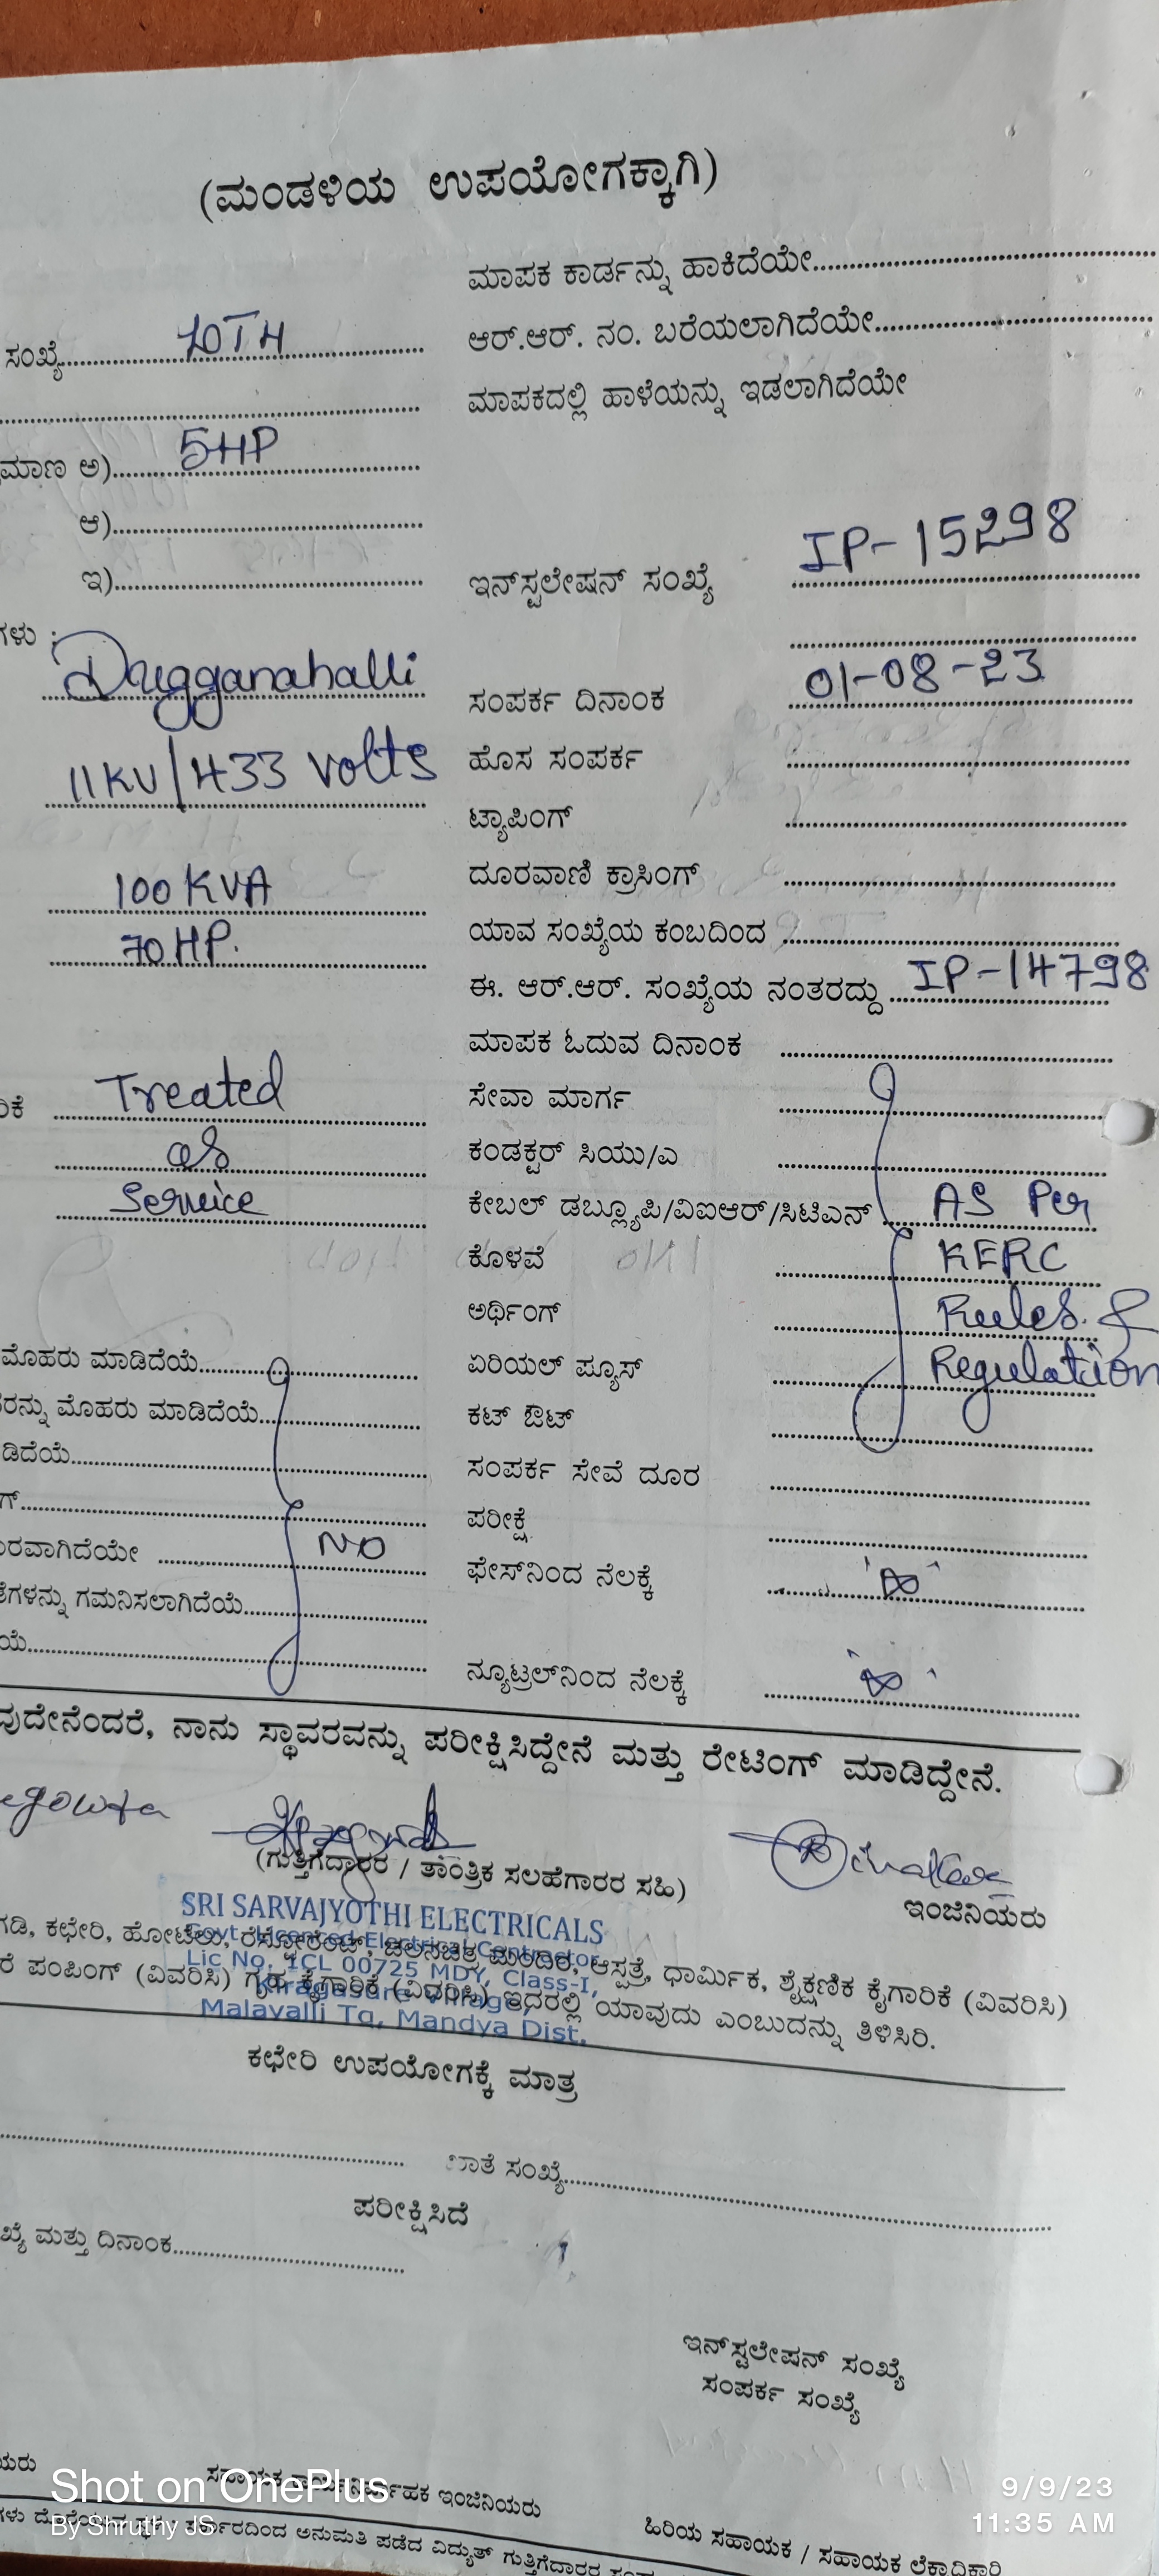 (ಮಂಡಳಿಯ ಉಪಯೋಗಕ್ಕಾಗಿ)
ಮಾಪಕ ಕಾರ್ಡನ್ನು ಹಾಕಿದೆಯೇ
ಸಂಖ್ಯೆ 10TH ಆರ್.ಆರ್. ನಂ. ಬರೆಯಲಾಗಿದೆಯೇ
ಮಾಪಕದಲ್ಲಿ ಹಾಳೆಯನ್ನು ಇಡಲಾಗಿದೆಯೇ
ಮಾಣ ಅ) 5HP
ಆ)
ಇ) ಇನ್‌ಸ್ಟಲೇಷನ್ ಸಂಖ್ಯೆ IP-15298
ಗಳು :
Dugganahalli ಸಂಪರ್ಕ ದಿನಾಂಕ 01-08-23
11KV/433 volts ಹೊಸ ಸಂಪರ್ಕ
ಟ್ಯಾಪಿಂಗ್
100 KVA ದೂರವಾಣಿ ಕ್ರಾಸಿಂಗ್
70 HP. ಯಾವ ಸಂಖ್ಯೆಯ ಕಂಬದಿಂದ
ಈ. ಆರ್.ಆರ್. ಸಂಖ್ಯೆಯ ನಂತರದ್ದು IP-14798
ಮಾಪಕ ಓದುವ ದಿನಾಂಕ
ರಿಕೆ Treated ಸೇವಾ ಮಾರ್ಗ
as ಕಂಡಕ್ಟರ್ ಸಿಯು/ಎ
Service ಕೇಬಲ್ ಡಬ್ಲ್ಯೂಪಿ/ವಿಐಆರ್/ಸಿಟಿಎನ್ AS Per
ಕೊಳವೆ KERC
ಅರ್ಥಿಂಗ್ Rules &
ಮೊಹರು ಮಾಡಿದೆಯೆ ಏರಿಯಲ್ ಫ್ಯೂಸ್ Regulation
ರನ್ನು ಮೊಹರು ಮಾಡಿದೆಯೆ ಕಟ್ ಔಟ್
ಡಿದೆಯೆ ಸಂಪರ್ಕ ಸೇವೆ ದೂರ
ಗ್ ಪರೀಕ್ಷೆ
ರವಾಗಿದೆಯೇ NO ಫೇಸ್‌ನಿಂದ ನೆಲಕ್ಕೆ ∞
ಗಳನ್ನು ಗಮನಿಸಲಾಗಿದೆಯೆ
ಯೆ ನ್ಯೂಟ್ರಲ್‌ನಿಂದ ನೆಲಕ್ಕೆ ∞
ವುದೇನೆಂದರೆ, ನಾನು ಸ್ಥಾವರವನ್ನು ಪರೀಕ್ಷಿಸಿದ್ದೇನೆ ಮತ್ತು ರೇಟಿಂಗ್ ಮಾಡಿದ್ದೇನೆ.
(ಗುತ್ತಿಗೆದಾರರ / ತಾಂತ್ರಿಕ ಸಲಹೆಗಾರರ ಸಹಿ)
ಇಂಜಿನಿಯರು
SRI SARVAJYOTHI ELECTRICALS
Govt. Licenced Electrical Contractor
Lic No. 1CL 00725 MDY, Class-I,
Malavalli Tq, Mandya Dist.
ಗಡಿ, ಕಛೇರಿ, ಹೋಟೆಲು, ರೆಸ್ಟೋರೆಂಟ್, ಚಲನಚಿತ್ರ ಮಂದಿರ, ಆಸ್ಪತ್ರೆ, ಧಾರ್ಮಿಕ, ಶೈಕ್ಷಣಿಕ ಕೈಗಾರಿಕೆ (ವಿವರಿಸಿ)
ರೆ ಪಂಪಿಂಗ್ (ವಿವರಿಸಿ) ಗೃಹ ಕೈಗಾರಿಕೆ (ವಿವರಿಸಿ) ಇದರಲ್ಲಿ ಯಾವುದು ಎಂಬುದನ್ನು ತಿಳಿಸಿರಿ.
ಕಛೇರಿ ಉಪಯೋಗಕ್ಕೆ ಮಾತ್ರ
ಖಾತೆ ಸಂಖ್ಯೆ
ಪರೀಕ್ಷಿಸಿದೆ
ಖ್ಯೆ ಮತ್ತು ದಿನಾಂಕ
ಇನ್‌ಸ್ಟಲೇಷನ್ ಸಂಖ್ಯೆ
ಸಂಪರ್ಕ ಸಂಖ್ಯೆ
ಯರು
ಇಂಜಿನಿಯರು
ಹಿರಿಯ ಸಹಾಯಕ / ಸಹಾಯಕ ಲೆಕ್ಕಾಧಿಕಾರಿ
ಅನುಮತಿ ಪಡೆದ ವಿದ್ಯುತ್ ಗುತ್ತಿಗೆದಾರರ
Shot on OnePlus
By Shruthy JS
9/9/23
11:35 AM